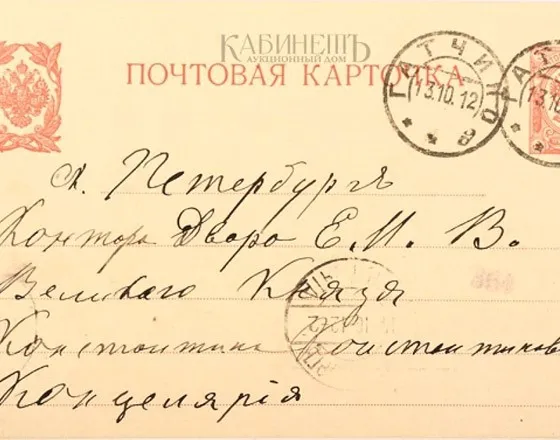 КАБИНЕТЪ
АУКЦИОННЫЙ ДОМ
ПОЧТОВАЯ КАРТОЧКА
ГАТЧИНО
13.10.12
ГАТ
С. Петербургъ
Контора Двора Е. И. В.
Великаго Князя
Константина Константинов
Канцелярія